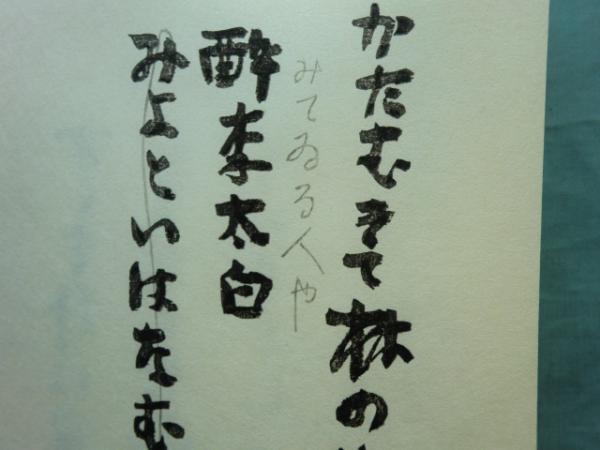 かたむきて林の
みてゐる人や
醉李太白
みよといはなむ